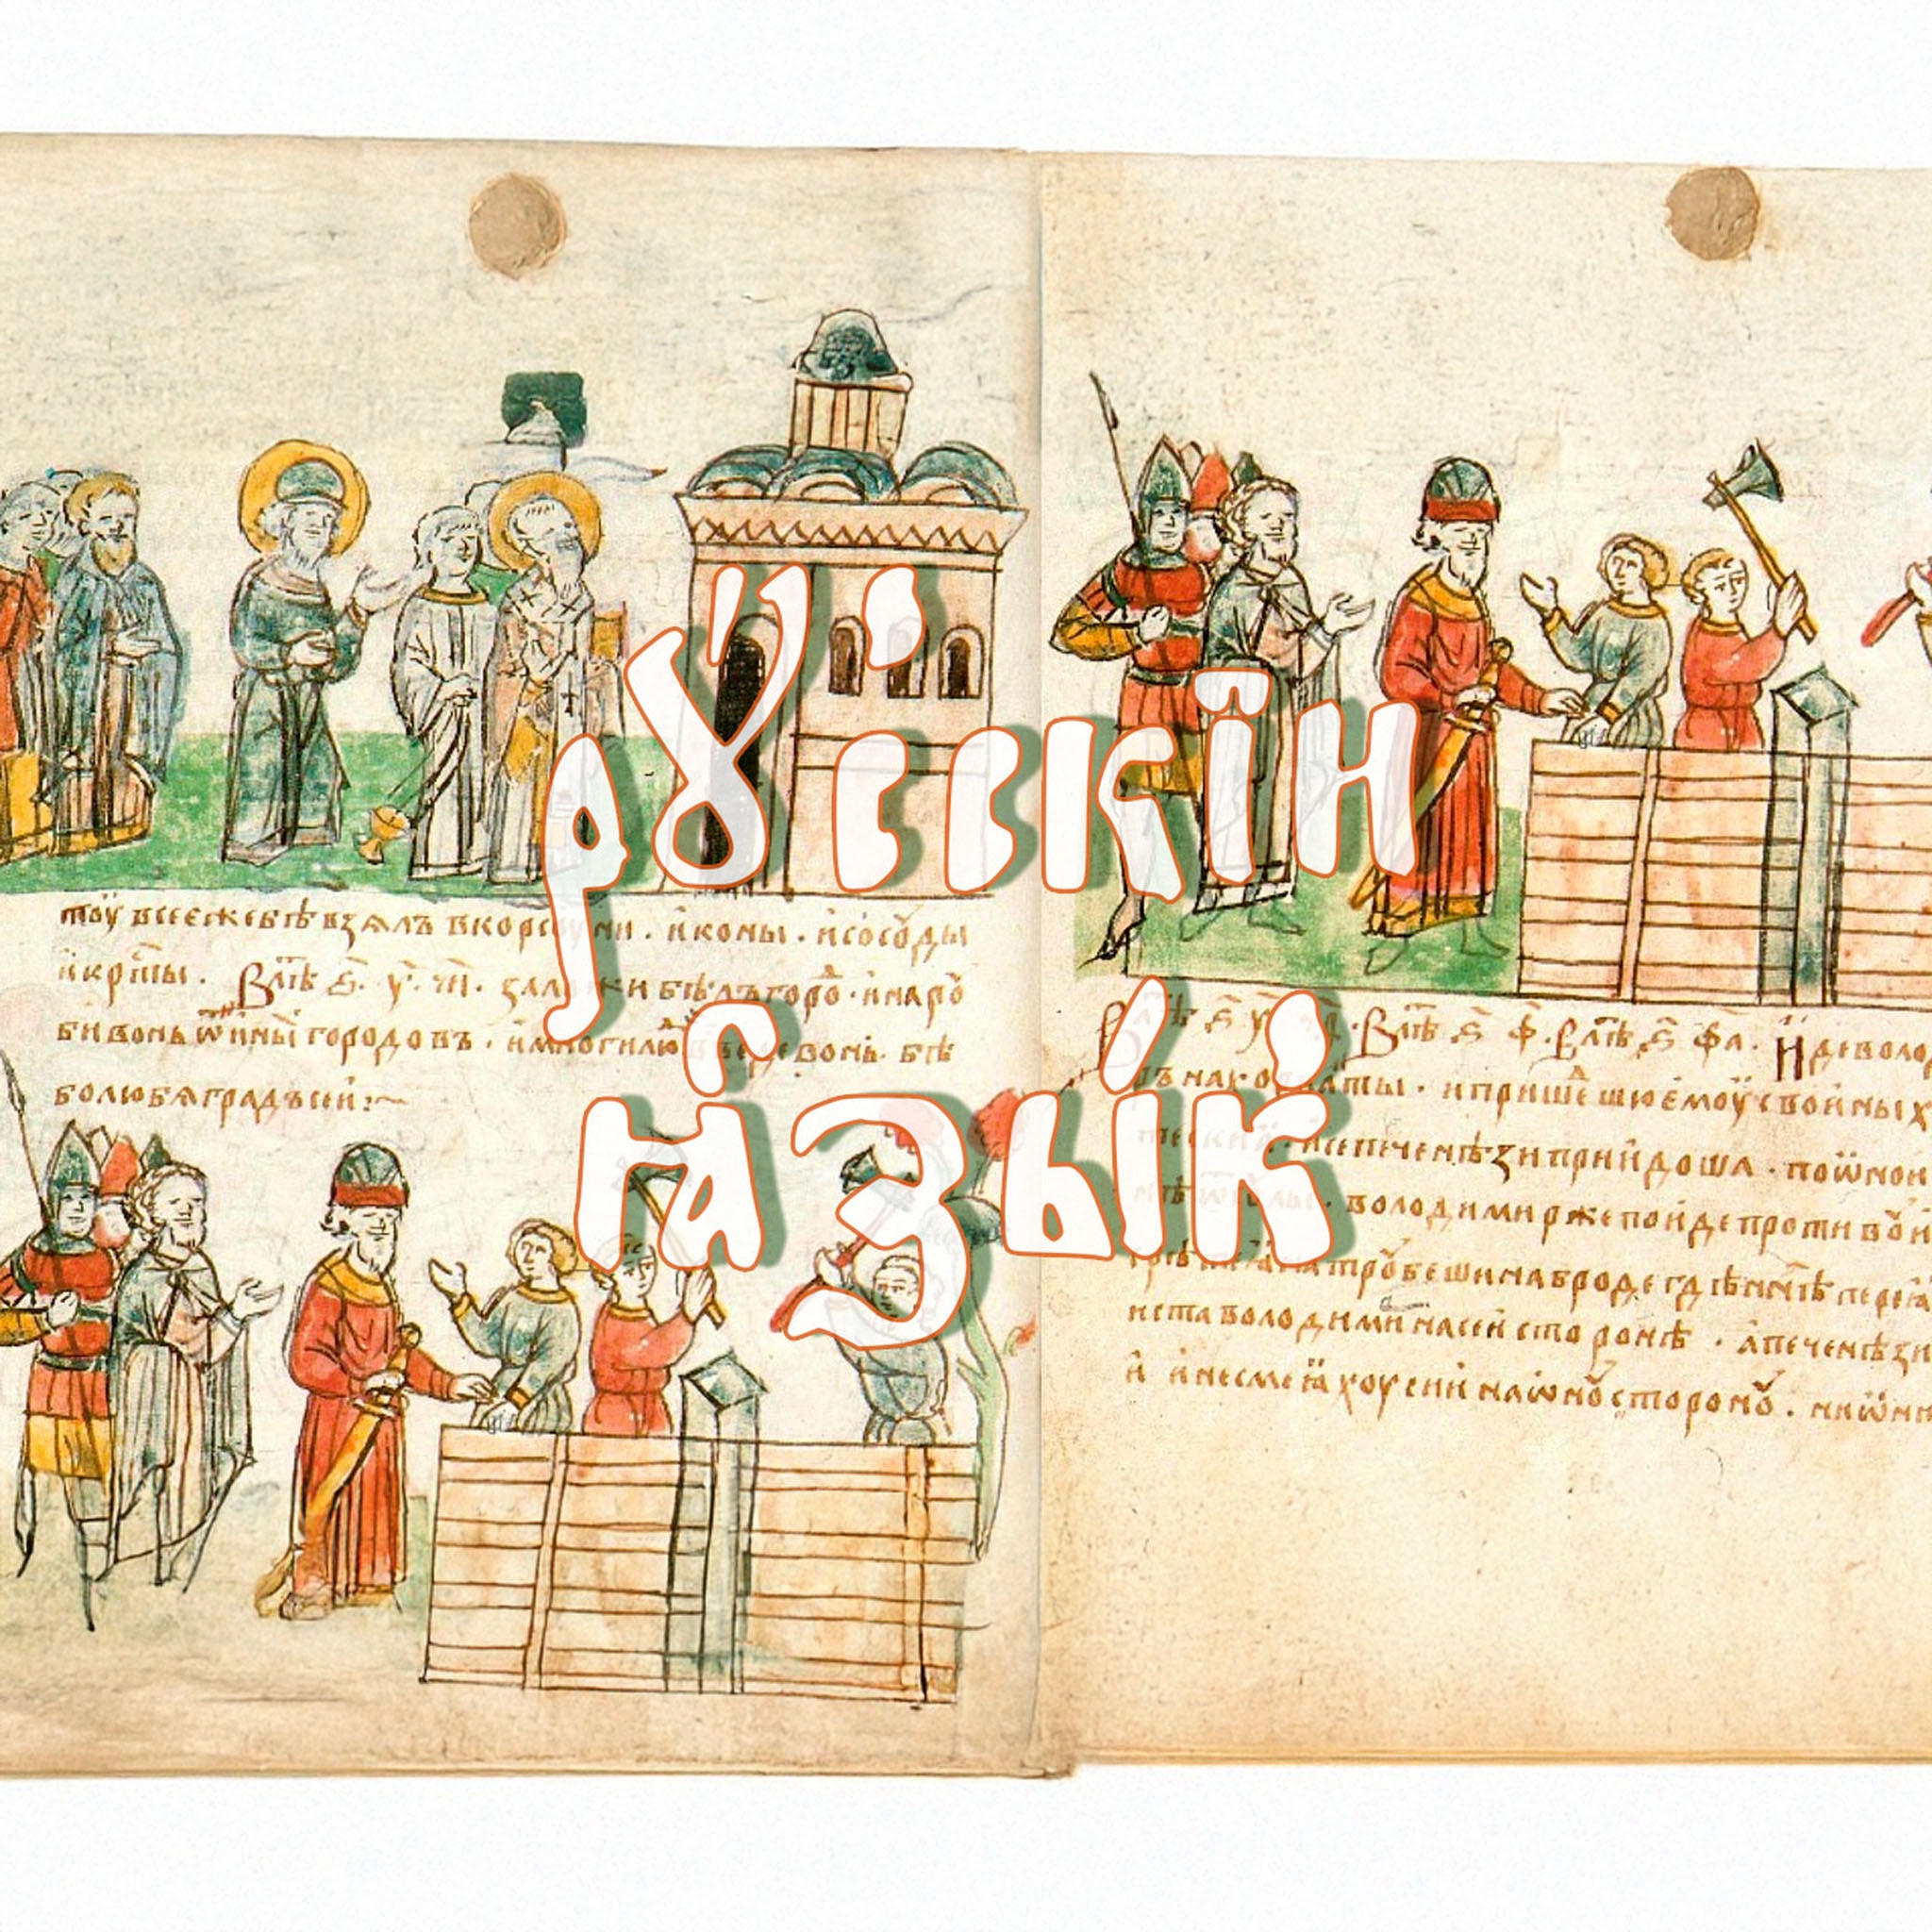 рꙋ́сскїи
ꙗ҆зы́к
тоу всеежебѣ взѧлъ вкорсоуни . иконы . исосоды
икрⷭ҇ты . Влⷮѣ ѕ҃ . у҃ . ч҃и . заложи бѣлъгоро . инаро
бивонь ѿины городовъ . имногилю ведевонь . бѣ
болюбѧградъсеи :~
ѕ҃ Влⷮѣ ѕ҃ ф҃ . Влⷮѣ ѕ҃ ф҃а . Иде воло
ваты . ипришешюемоу своиных
исепеченѣзи приидоша . поѿнои
володимиржепоиде противꙋ
натрꙋбеши наброде гдѣннⷩ҇ѣ переꙗ
иставолодими насеи сторонѣ . апеченѣзи
и инесмеꙗхоу сии наѡнꙋ сторонꙋ . ниѡни